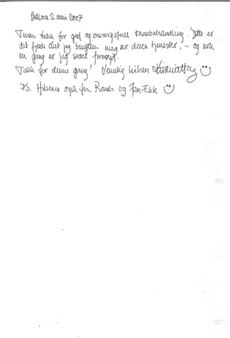 2. mai 2007
Tusen takk for god og omsorgsfull tannbehandling. Dette er
det fjerde året jeg benytter meg av deres tjenester, - og nok
en gang er jeg svært fornøyd.
Takk for denne gang! Vennlig hilsen
PS. Hilsener også fra Randi og Jan-Erik ☺